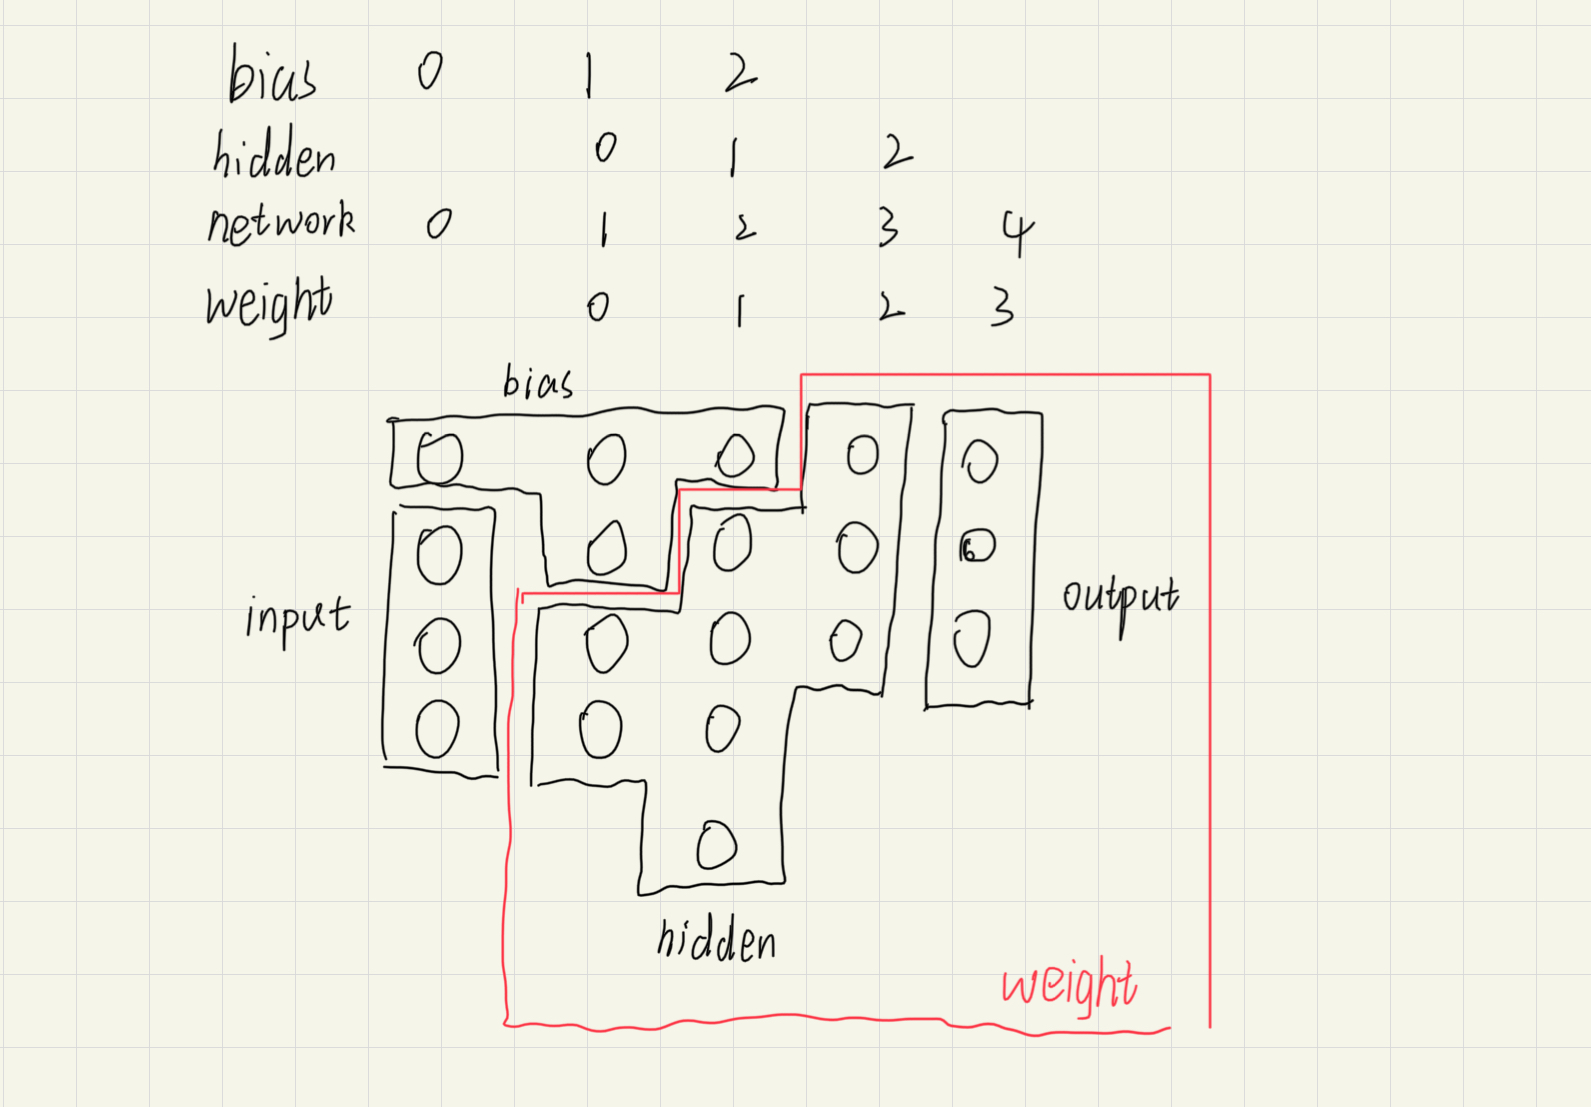 bias 0 1 2
hidden 0 1 2
network 0 1 2 3 4
weight 0 1 2 3
bias
input
output
hidden
weight